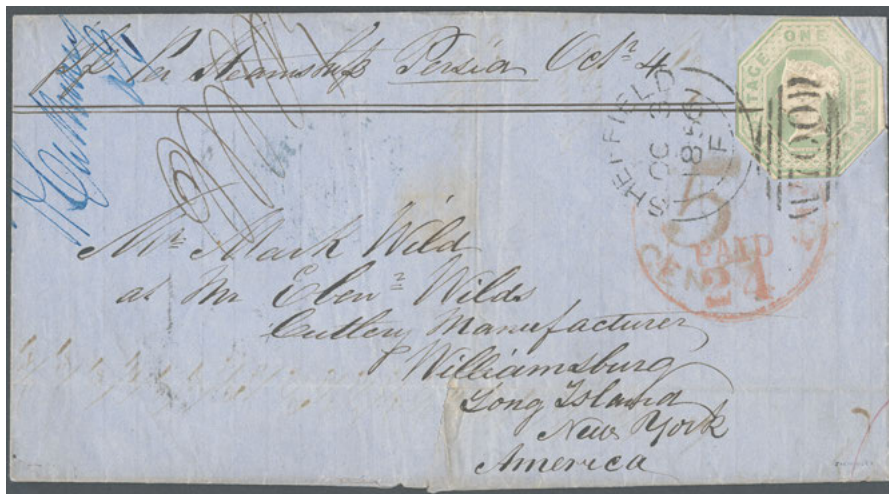 Per Steamship Persia Octr 4
POSTAGE ONE SHILLING
SHEFFIELD
OC 3
1856
F
700
5
CENTS
PAID
24
Mr Mark Wild
at Mr Ebenr Wilds
Cutlery Manufacturer
Williamsburg
Long Island
New York
America